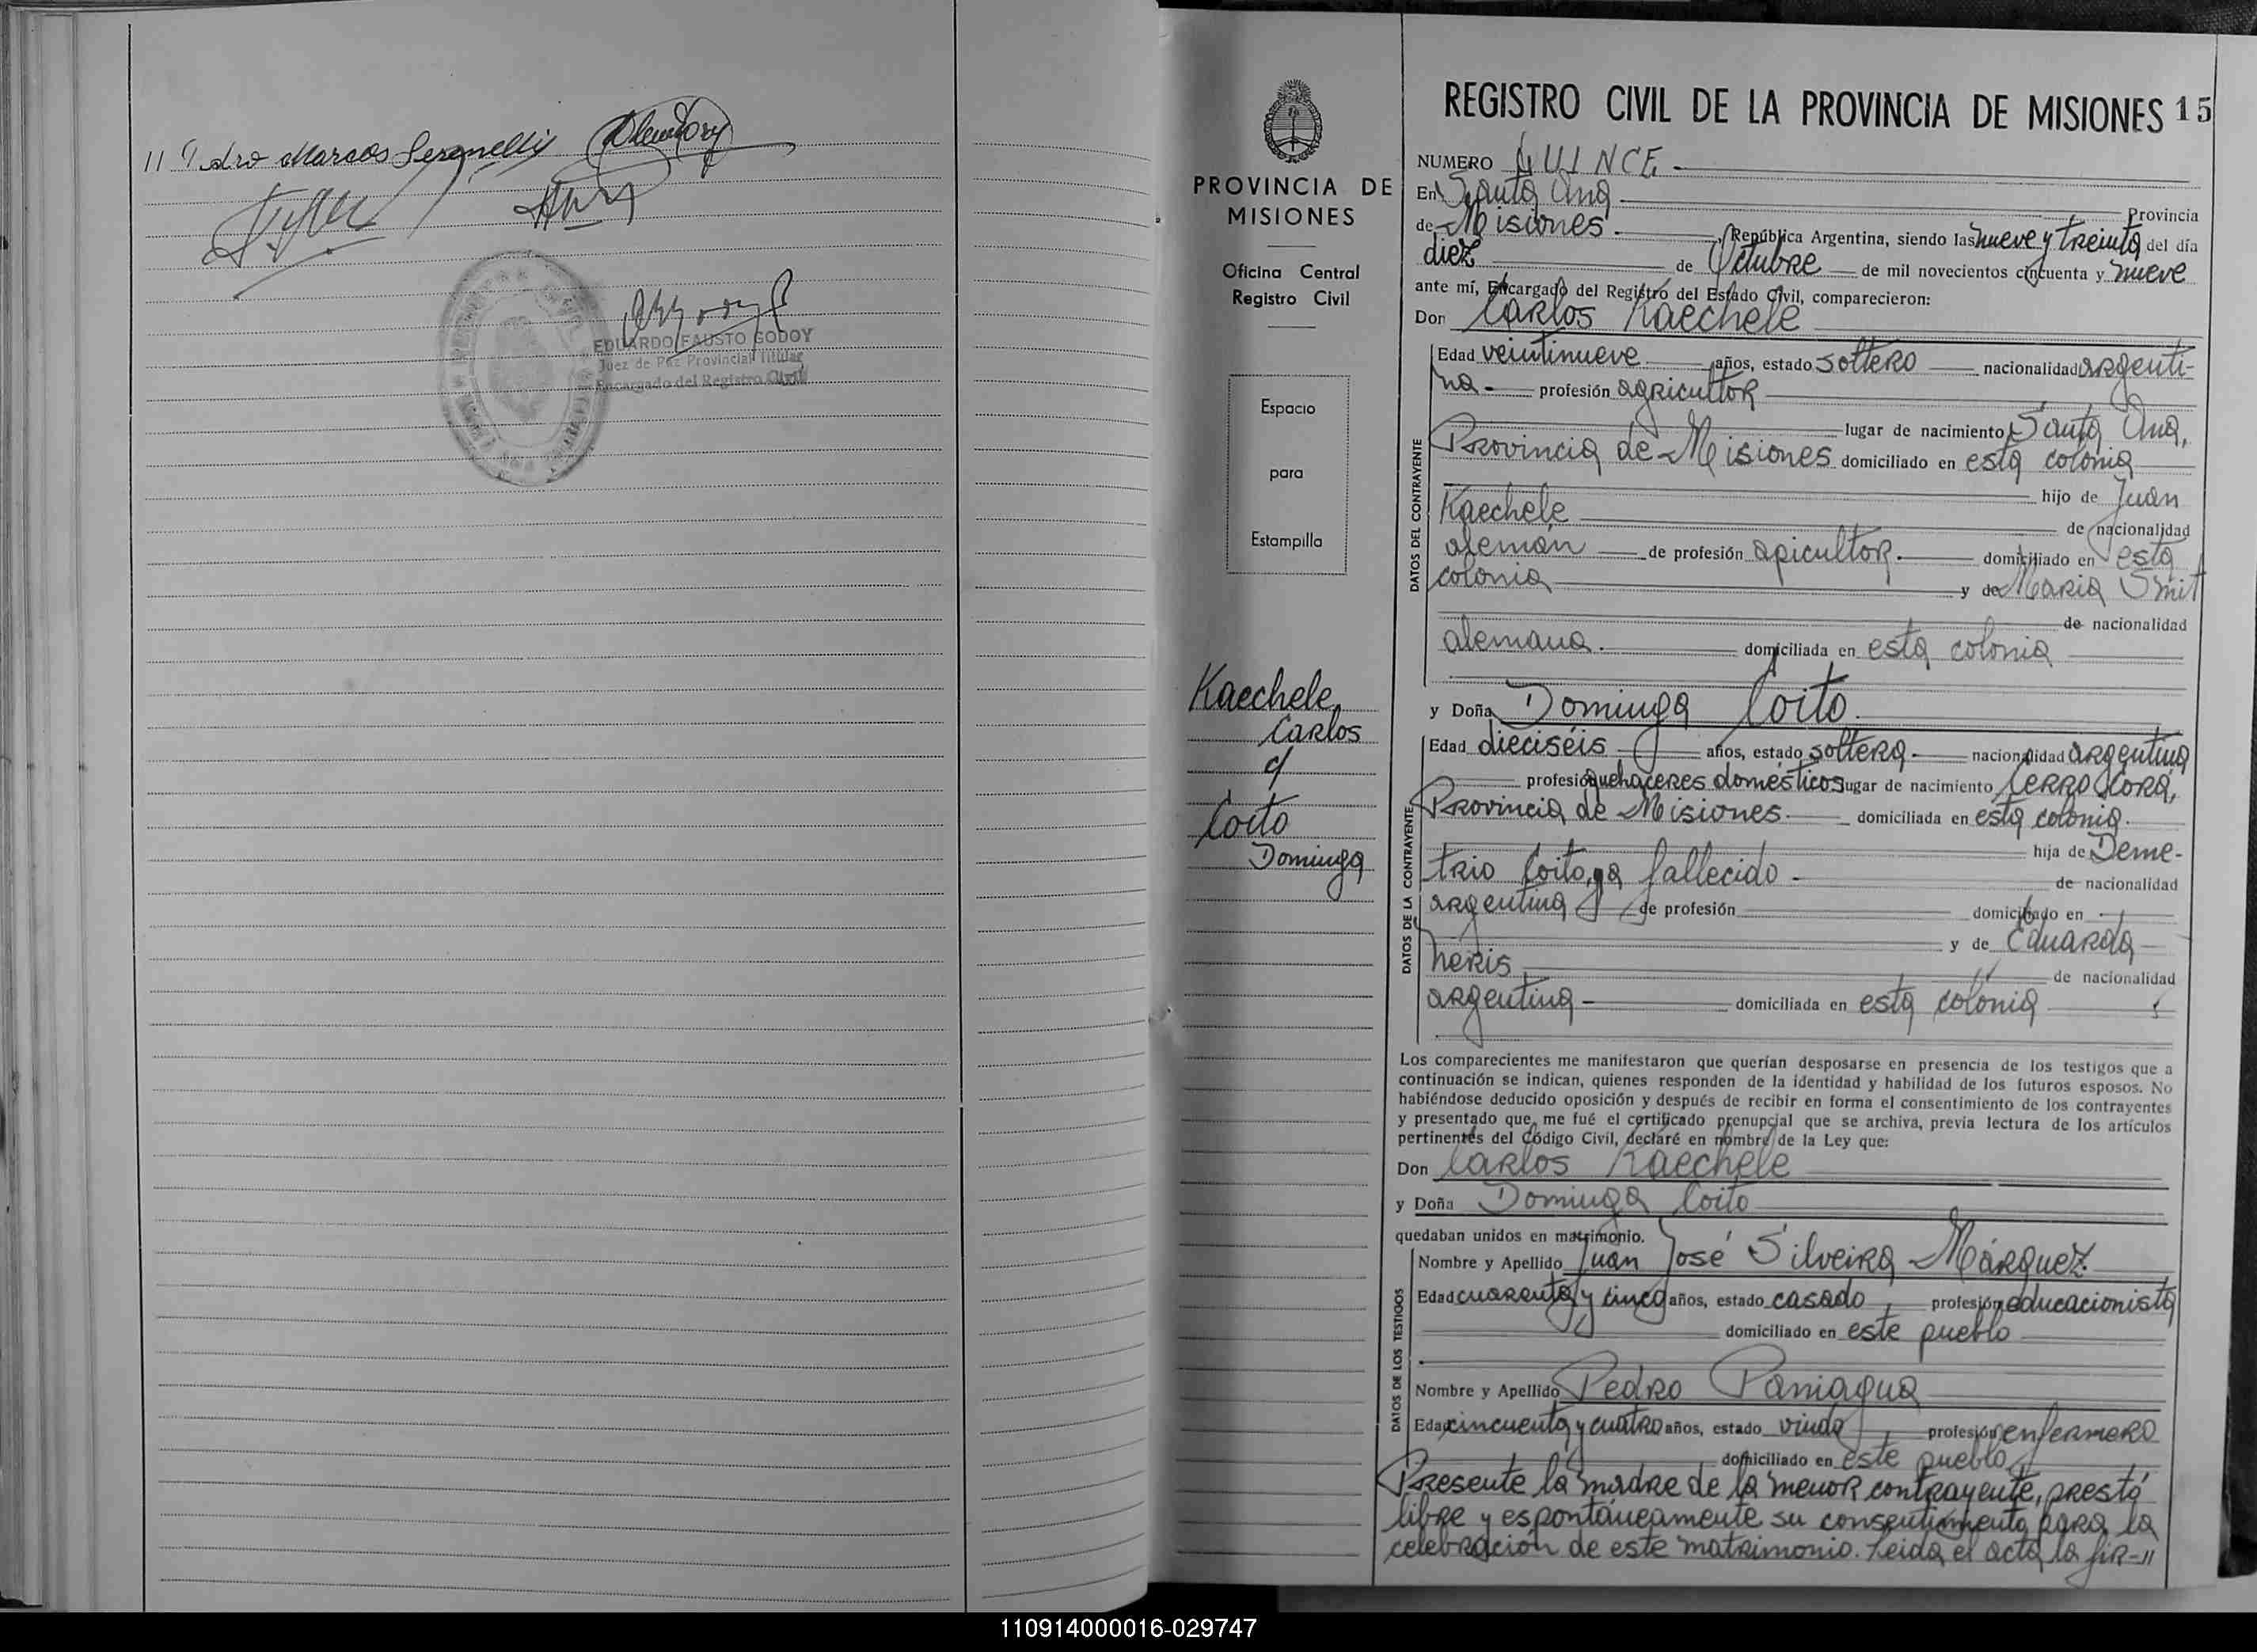 11 Pedro Marcos
EDUARDO FAUSTO GODOY
Juez de Paz Provincial Titular
Encargado del Registro Civil
PROVINCIA DE
MISIONES
Oficina Central
Registro Civil
Espacio
para
Estampilla
Kaechele
Carlos
c/
Coito
Dominga
REGISTRO CIVIL DE LA PROVINCIA DE MISIONES 15
NUMERO QUINCE.-
En Santa Ana Provincia
de Misiones.- , República Argentina, siendo las nueve y treinta del día
diez de Octubre de mil novecientos cincuenta y nueve
ante mí, Encargado del Registro del Estado Civil, comparecieron:
Don Carlos Kaechele
DATOS DEL CONTRAYENTE
Edad veintinueve años, estado soltero nacionalidad argenti-
na.- profesión agricultor
lugar de nacimiento Santa Ana,
Provincia de Misiones domiciliado en esta colonia
hijo de Juan
Kaechele de nacionalidad
alemán de profesión apicultor.- domiciliado en esta
colonia y de Maria Smit
de nacionalidad
alemana.- domiciliada en esta colonia
y Doña Dominga Coito.
DATOS DE LA CONTRAYENTE
Edad dieciséis años, estado soltera.- nacionalidad argentina
profesión quehaceres domésticos lugar de nacimiento Cerro Corá,
Provincia de Misiones.- domiciliada en esta colonia.
hija de Deme-
trio Coito, ya fallecido.- de nacionalidad
argentina de profesión domiciliado en
y de Eduarda
neris de nacionalidad
argentina domiciliada en esta colonia
Los comparecientes me manifestaron que querían desposarse en presencia de los testigos que a
continuación se indican, quienes responden de la identidad y habilidad de los futuros esposos. No
habiéndose deducido oposición y después de recibir en forma el consentimiento de los contrayentes
y presentado que me fué el certificado prenupcial que se archiva, previa lectura de los artículos
pertinentes del Código Civil, declaré en nombre de la Ley que:
Don Carlos Kaechele
y Doña Dominga Coito
quedaban unidos en matrimonio.
DATOS DE LOS TESTIGOS
Nombre y Apellido Juan José Silveira Márquez.
Edad cuarenta y cinco años, estado casado, profesión educacionista
domiciliado en este pueblo
Nombre y Apellido Pedro Paniagua
Edad cincuenta y cuatro años, estado viudo, profesión enfermero
domiciliado en este pueblo
Presente la madre de la menor contrayente, prestó
libre y espontáneamente su consentimiento para la
celebración de este matrimonio. Leida el acta la fir-11
110914000016-029747